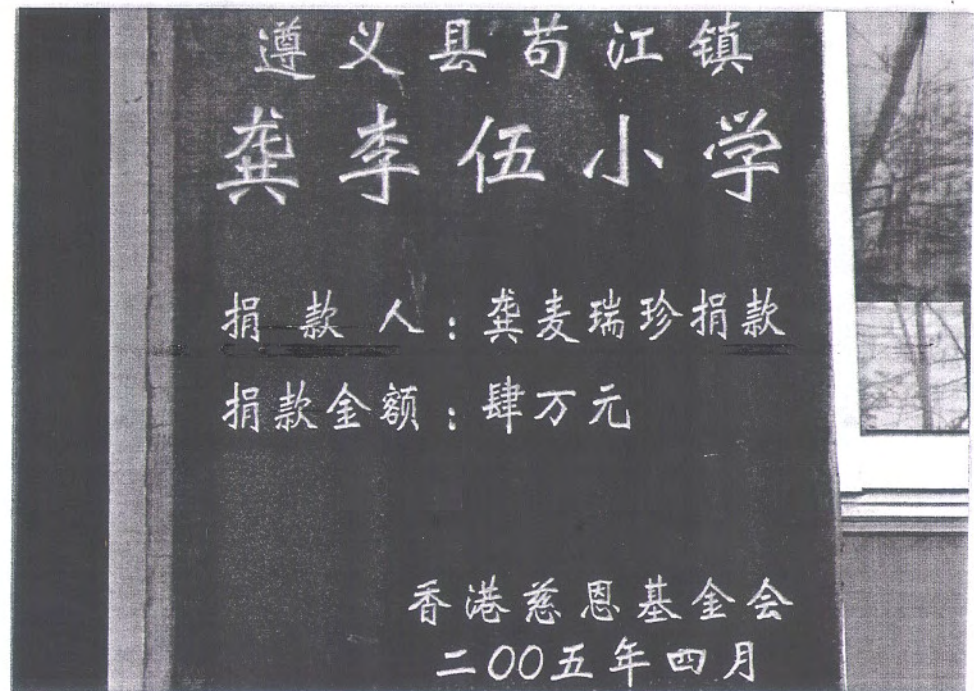 遵义县苟江镇
龚李伍小学
捐款人：龚麦瑞珍捐款
捐款金额：肆万元
香港慈恩基金会
二00五年四月